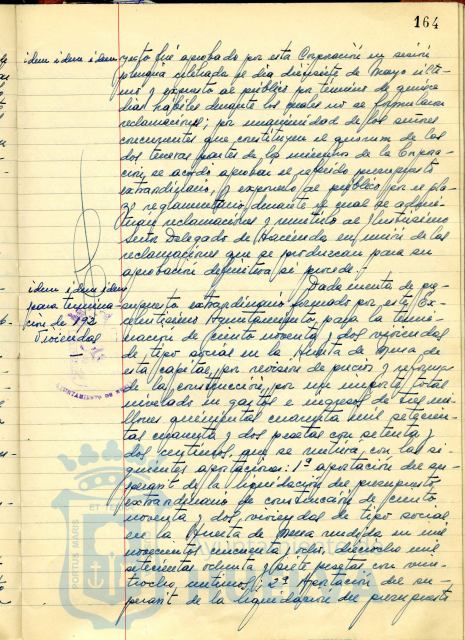 164
idem idem idem
yecto fué aprobado por esta Corporación en sesión
plenaria celebrada el día diecisiete de Mayo últi-
mo y expuesto al público por término de quince
días hábiles durante los cuales no se formularon
reclamaciones; por unanimidad de los señores
concurrentes que constituyen el quorum de las
dos terceras partes de los miembros de la Corpora-
ción, se acordó aprobar el referido presupuesto
extraordinario, y exponerlo al público por el pla-
zo reglamentario durante el cual se admi-
tirán reclamaciones y remitirlo al Ilustrísimo
Señor Delegado de Hacienda en unión de las
reclamaciones que se produzcan para su
aprobación definitiva si procede.
idem idem idem
para termina-
ción de 192
viviendas
Dada cuenta de
supuesto extraordinario formado por este Ex-
celentísimo Ayuntamiento, para la termi-
nación de ciento noventa y dos viviendas
de tipo social en la Huerta de Mena de
esta capital, por revisión de precios y reformas
de la construcción, por un importe total
nivelado en gastos e ingresos de tres mi-
llones quinientas cuarenta mil setecien-
tas cincuenta y dos pesetas con setenta y
dos céntimos, que se nutrirá con las si-
guientes aportaciones: 1ª aportación del su-
perávit de la liquidación del presupuesto
extraordinario de construcción de ciento
noventa y dos viviendas de tipo social
en la Huerta de Mena rendida en mil
novecientos cincuenta y ocho, dieciocho mil
setecientas ochenta y siete pesetas con vein-
tiocho céntimos; 2ª Aportación del su-
perávit de la liquidación del presupuesto
AYUNTAMIENTO DE
PORTUS MARIS